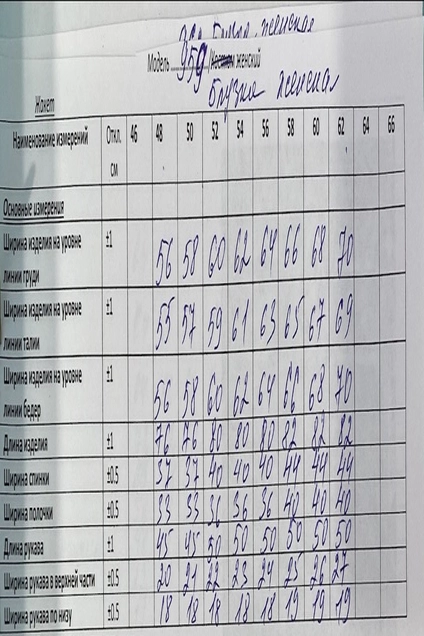 Блузка женская
Модель 359 женский
Блузка женская
Жакет
Наименование измерений Откл. см 46 48 50 52 54 56 58 60 62 64 66
Основные измерения
Ширина изделия на уровне линии груди ±1 56 58 60 62 64 66 68 70
Ширина изделия на уровне линии талии ±1 55 57 59 61 63 65 67 69
Ширина изделия на уровне линии бедер ±1 56 58 60 62 64 66 68 70
Длина изделия ±1 76 76 80 80 80 82 82 82
Ширина спинки ±0.5 37 37 40 40 40 44 44 44
Ширина полочки ±0.5 33 33 36 36 36 40 40 40
Длина рукава ±1 45 45 50 50 50 50 50 50
Ширина рукава в верхней части ±0.5 20 21 22 23 24 25 26 27
Ширина рукава по низу ±0.5 18 18 18 18 18 19 19 19